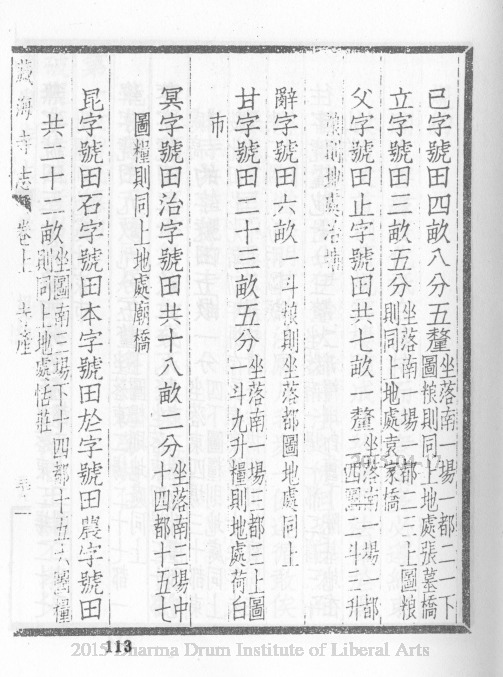 已字號田四畝八分五釐坐落南一場一都二一下
圖粮則同上地處張墓橋
立字號田三畝五分坐落南一場一都二三上圖粮
則同上地處袁家橋
父字號田止字號田共七畝一釐坐落南一場一都
四圖二斗三升
粮則地處冶塘
辭字號田六畝一斗粮則坐落都圖地處同上
甘字號田二十三畝五分坐落南一場三都三上圖
一斗九升糧則地處荷白
市
冥字號田治字號田共十八畝二分坐落南三場中
十四都十五七
圖糧則同上地處廟橋
昆字號田石字號田本字號田於字號田農字號田
共二十二畝坐圖南三場下十四都十五六圖糧
則同上地處恬莊
藏海寺志 卷上 寺產
113
2015 Dharma Drum Institute of Liberal Arts